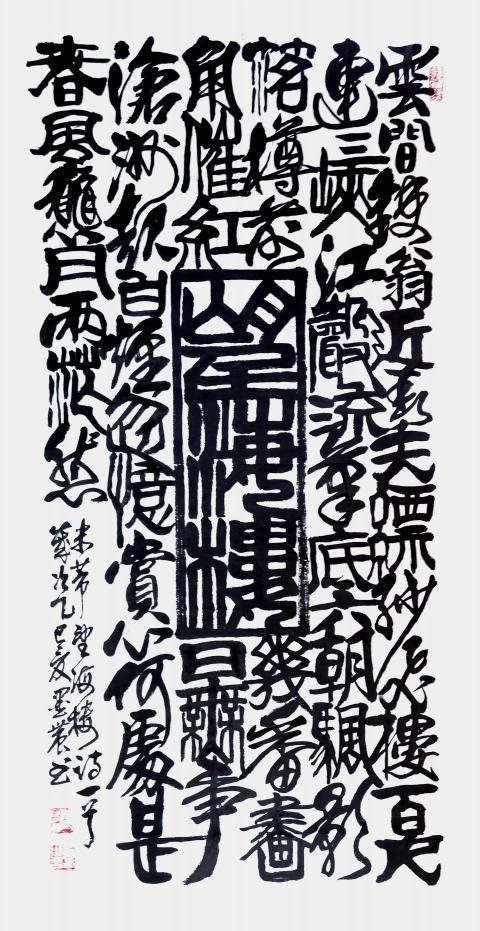 雲間鐵瓮近青天縹緲飛樓百尺
連三峽江聲流筆底六朝颿影
落樽前幾番畫
角催紅日無事
滄洲起白煙忽憶賞心何處是
春風龝月兩茫然
望海樓
米芾望海楼詩一首
歲次乙巳夏墨農书